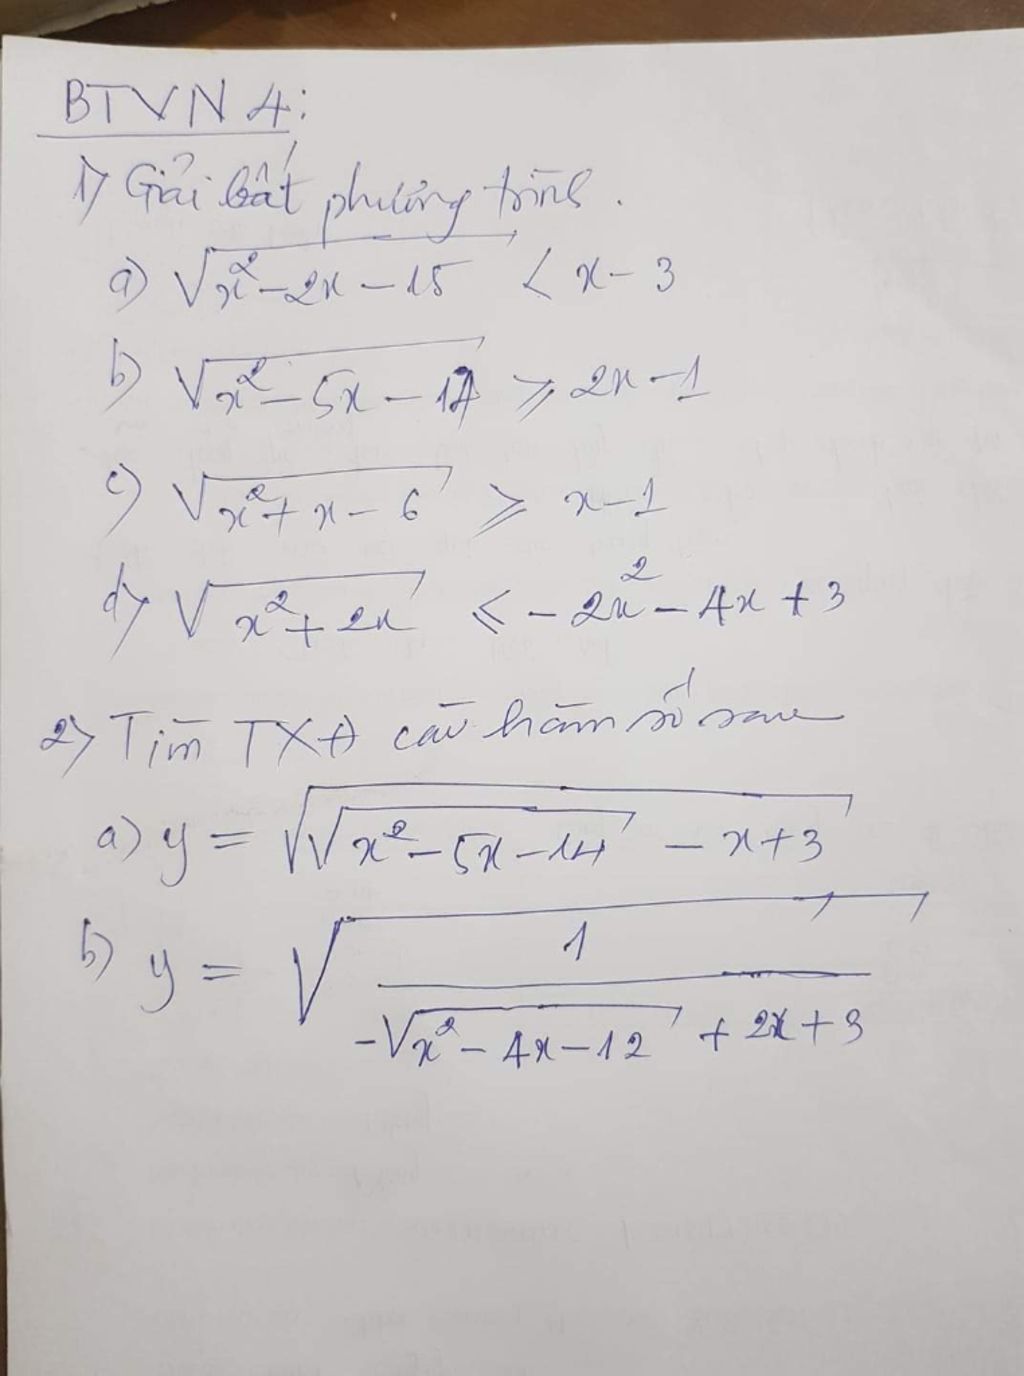 BTVN 4:
1) Giải bất phương trình.
a) √(x²-2x-15) < x-3
b) √(x²-5x-14) ≥ 2x-1
c) √(x²+x-6) ≥ x-1
d) √(x²+2x) ≤ -2x²-4x+3
2) Tìm TXĐ các hàm số sau
a) y = √(√(x²-5x-14) - x+3)
b) y = √(1/(-√(x²-4x-12) + 2x+3))